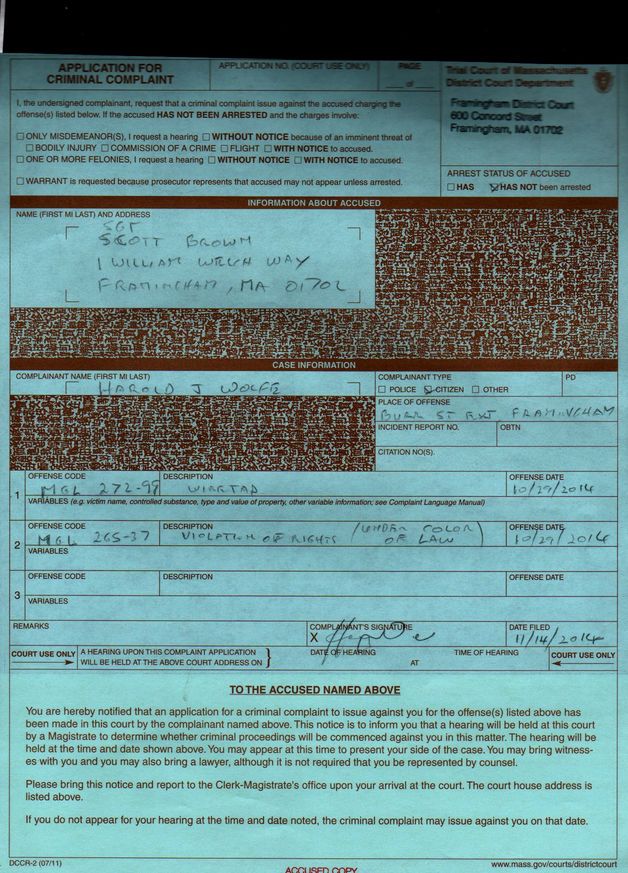 APPLICATION FOR
CRIMINAL COMPLAINT
APPLICATION NO. (COURT USE ONLY)
PAGE
____ of ____
Trial Court of Massachusetts
District Court Department
Framingham District Court
600 Concord Street
Framingham, MA 01702
I, the undersigned complainant, request that a criminal complaint issue against the accused charging the
offense(s) listed below. If the accused HAS NOT BEEN ARRESTED and the charges involve:
☐ ONLY MISDEMEANOR(S), I request a hearing ☐ WITHOUT NOTICE because of an imminent threat of
☐ BODILY INJURY ☐ COMMISSION OF A CRIME ☐ FLIGHT ☐ WITH NOTICE to accused.
☐ ONE OR MORE FELONIES, I request a hearing ☐ WITHOUT NOTICE ☐ WITH NOTICE to accused.
☐ WARRANT is requested because prosecutor represents that accused may not appear unless arrested.
ARREST STATUS OF ACCUSED
☐ HAS ☒ HAS NOT been arrested
INFORMATION ABOUT ACCUSED
NAME (FIRST MI LAST) AND ADDRESS
SGT
SCOTT BROWN
1 WILLIAM WELCH WAY
FRAMINGHAM, MA 01702
CASE INFORMATION
COMPLAINANT NAME (FIRST MI LAST)
HAROLD J WOLFE
COMPLAINANT TYPE
☐ POLICE ☒ CITIZEN ☐ OTHER
PD
PLACE OF OFFENSE
BURR ST EXT FRAMINGHAM
INCIDENT REPORT NO.
OBTN
CITATION NO(S).
1
OFFENSE CODE
MGL 272-99
DESCRIPTION
WIRETAP
OFFENSE DATE
10/29/2014
VARIABLES (e.g. victim name, controlled substance, type and value of property, other variable information; see Complaint Language Manual)
2
OFFENSE CODE
MGL 265-37
DESCRIPTION
VIOLATION OF RIGHTS (UNDER COLOR OF LAW)
OFFENSE DATE
10/29/2014
VARIABLES
3
OFFENSE CODE
DESCRIPTION
OFFENSE DATE
VARIABLES
REMARKS
COMPLAINANT'S SIGNATURE
X
DATE FILED
11/14/2014
COURT USE ONLY
A HEARING UPON THIS COMPLAINT APPLICATION
WILL BE HELD AT THE ABOVE COURT ADDRESS ON
DATE OF HEARING
AT
TIME OF HEARING
COURT USE ONLY
TO THE ACCUSED NAMED ABOVE
You are hereby notified that an application for a criminal complaint to issue against you for the offense(s) listed above has
been made in this court by the complainant named above. This notice is to inform you that a hearing will be held at this court
by a Magistrate to determine whether criminal proceedings will be commenced against you in this matter. The hearing will be
held at the time and date shown above. You may appear at this time to present your side of the case. You may bring witness-
es with you and you may also bring a lawyer, although it is not required that you be represented by counsel.
Please bring this notice and report to the Clerk-Magistrate's office upon your arrival at the court. The court house address is
listed above.
If you do not appear for your hearing at the time and date noted, the criminal complaint may issue against you on that date.
DCCR-2 (07/11)
www.mass.gov/courts/districtcourt
ACCUSED COPY